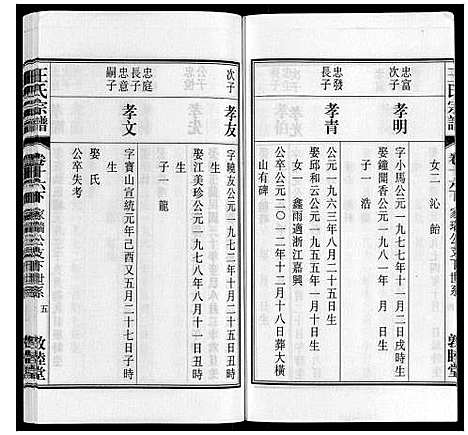 王氏宗譜
敦睦堂
女二 沁 飴
忠富
次子
孝明
字小馬公元一九七七年十一月十二日戌時生
娶鐘開香公元一九八一年 月 日生
子一 浩
忠發
長子
孝青
公元一九六三年八月二十五日生
娶邱和云公元一九五五年一月十日生
女一 鑫雨適浙江嘉興
公卒公元二〇一二年十二月十八日葬大橫
山有碑
次子
孝友
字曉友公元一九七二年十月二十五日丑時
生
娶江美珍公元一九七八年八月十一日丑時
生
子一 龍
忠庭
長子
忠意
嗣子
孝文
字寶山宣統元年己酉又五月二十七日子時
生
娶 氏
公卒失考
王氏宗譜
卷十六下
五
敦睦堂